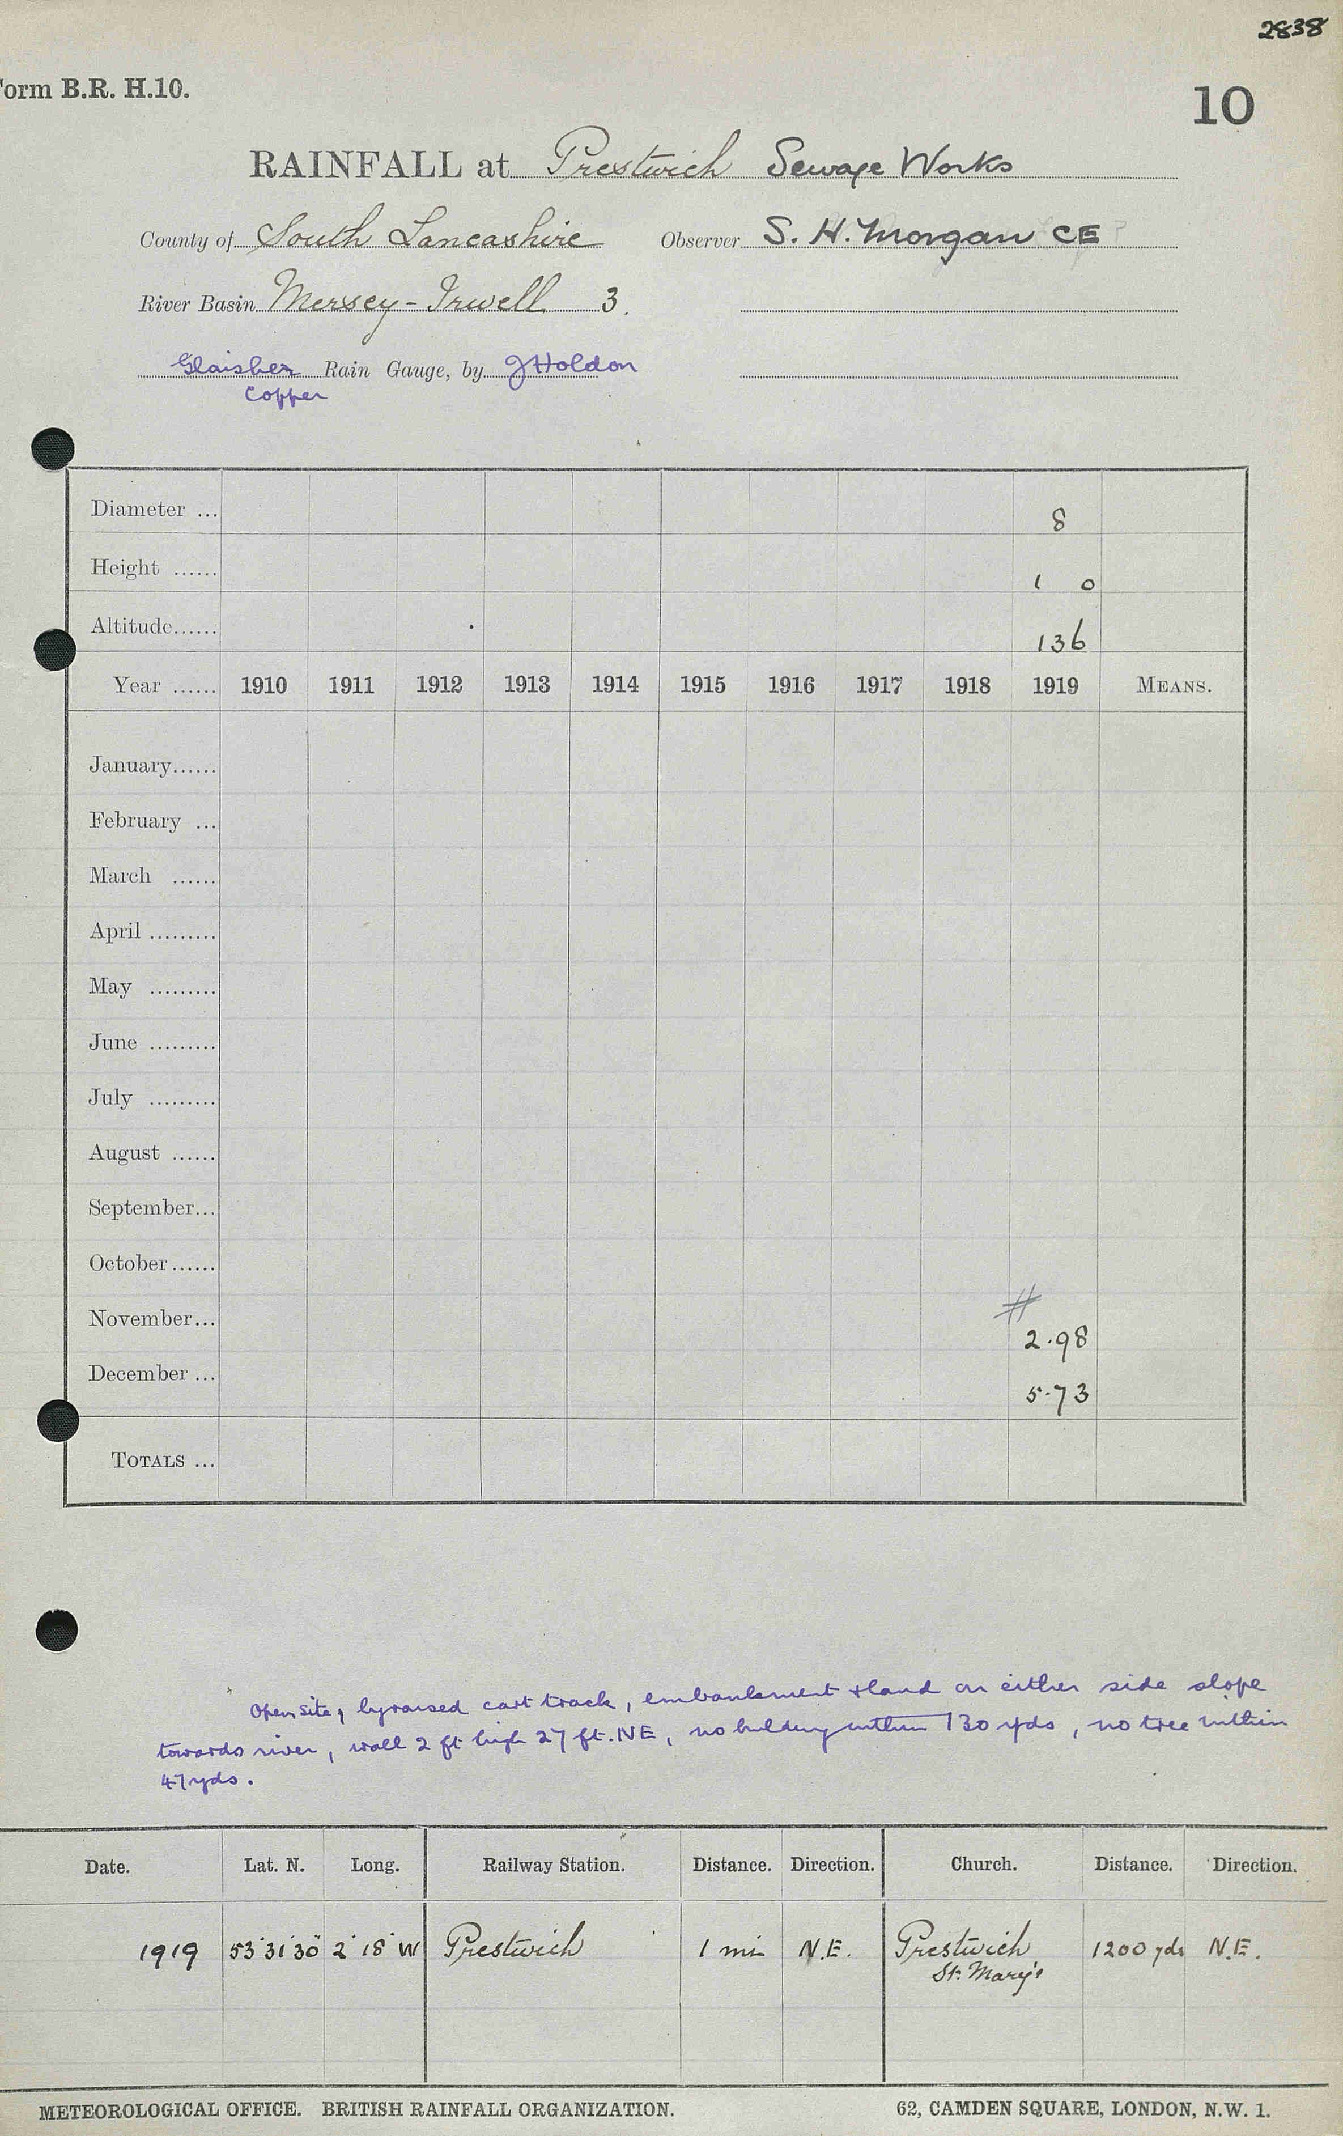 2838
Form B.R. H.10.
10
RAINFALL at Prestwich Sewage Works
County of South Lancashire Observer S. H. Morgan CE
River Basin Mersey - Irwell 3.
Glaisher Rain Gauge, by J Holdon
Copper
Diameter ... 8
Height ...... 1 0
Altitude...... 136
Year ...... 1910 1911 1912 1913 1914 1915 1916 1917 1918 1919 MEANS.
January......
February ...
March ......
April .........
May .........
June .........
July .........
August ......
September...
October......
#
November... 2.98
December... 5.73
TOTALS ...
Open site, by raised cart track, embankment & land on either side slope
towards river, wall 2 ft high 27 ft. NE, no building within 130 yds, no tree within
47 yds.
Date. Lat. N. Long. Railway Station. Distance. Direction. Church. Distance. Direction.
1919 53°31'30" 2°18' W Prestwich 1 mi N.E. Prestwich 1200 yds N.E.
St. Mary's
METEOROLOGICAL OFFICE. BRITISH RAINFALL ORGANIZATION. 62, CAMDEN SQUARE, LONDON, N.W. 1.